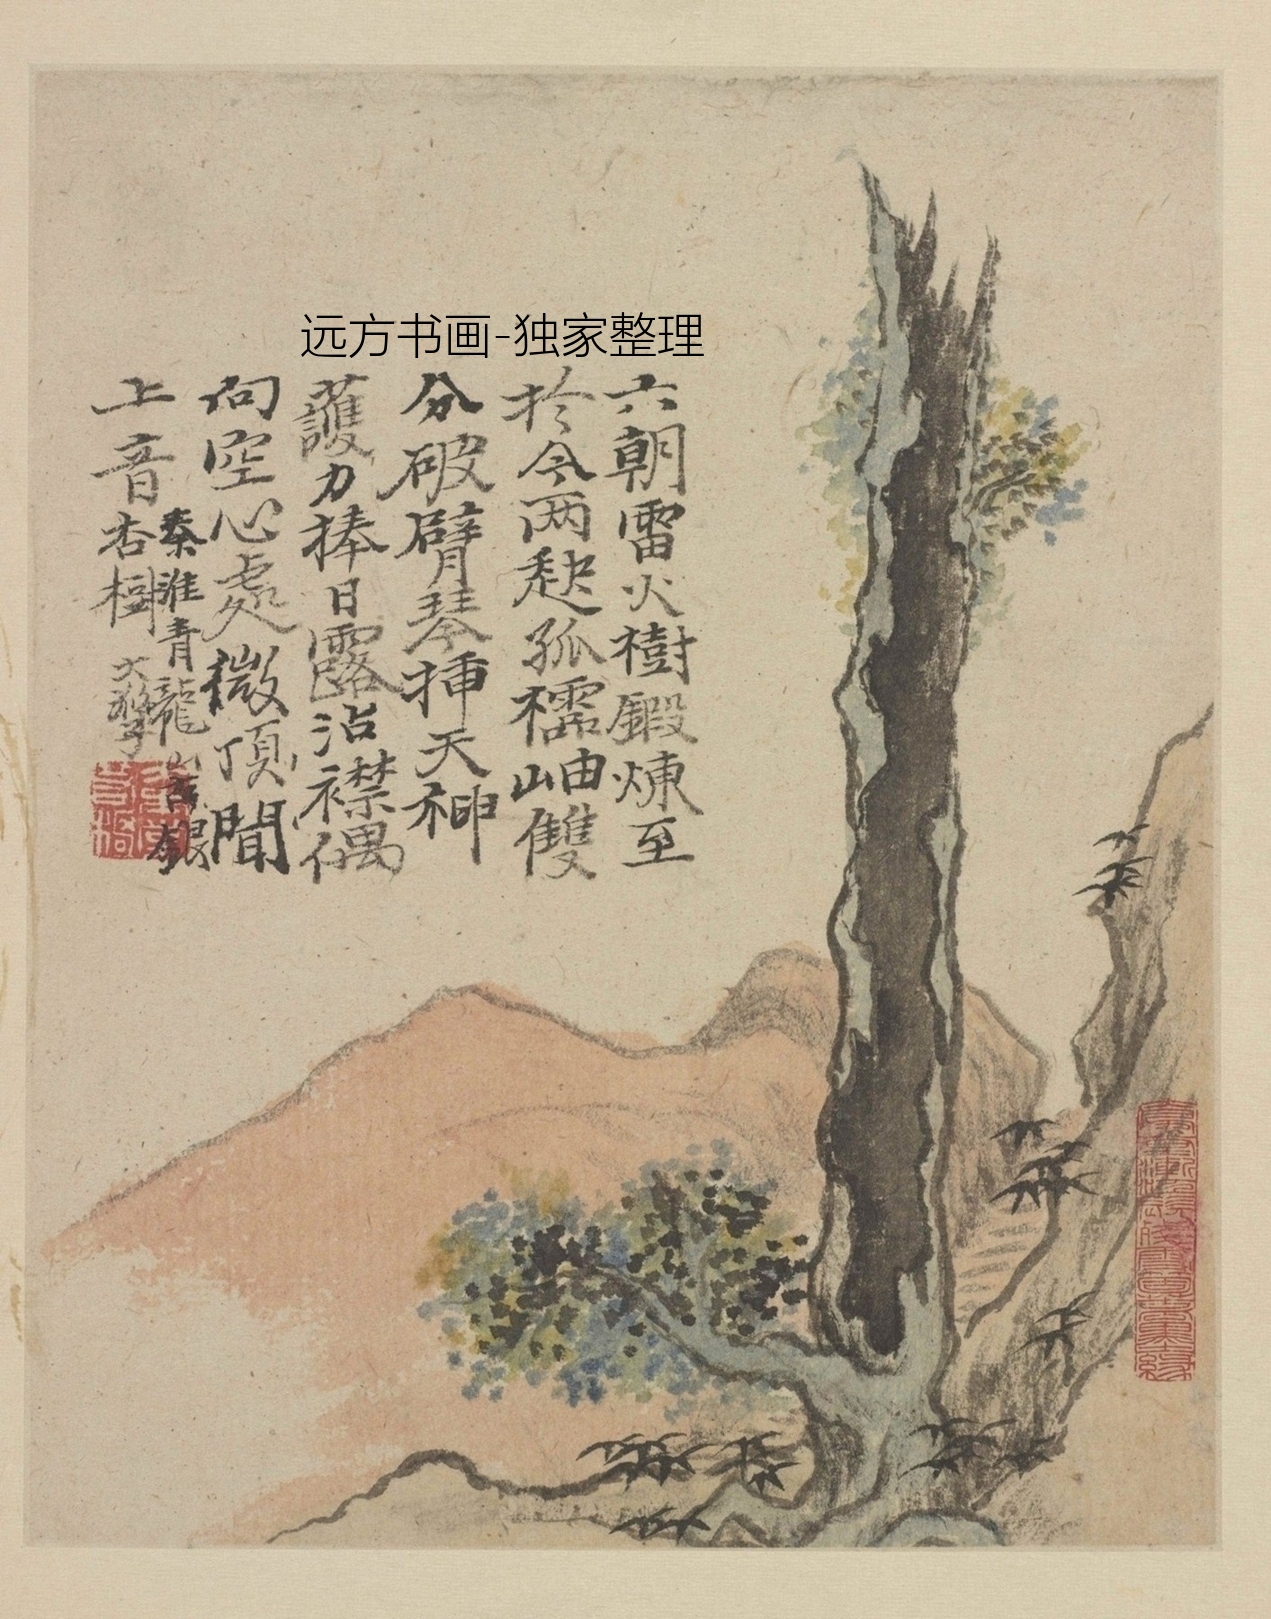 远方书画-独家整理
六朝雷火樹鍛煉至
於今两𠡠孤襦岫雙
分破臂琴挿天神
護力捧日露沾襟偶
向空心處微頂聞
上音
秦淮青龍山古銀
杏樹 大滌子